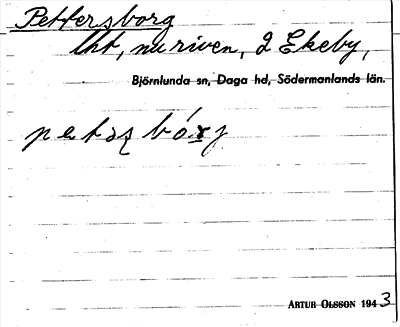 Pettersborg
lht, nu riven, 2 Ekeby,
Björnlunda sn, Daga hd, Södermanlands län.
Artur Olsson 1943